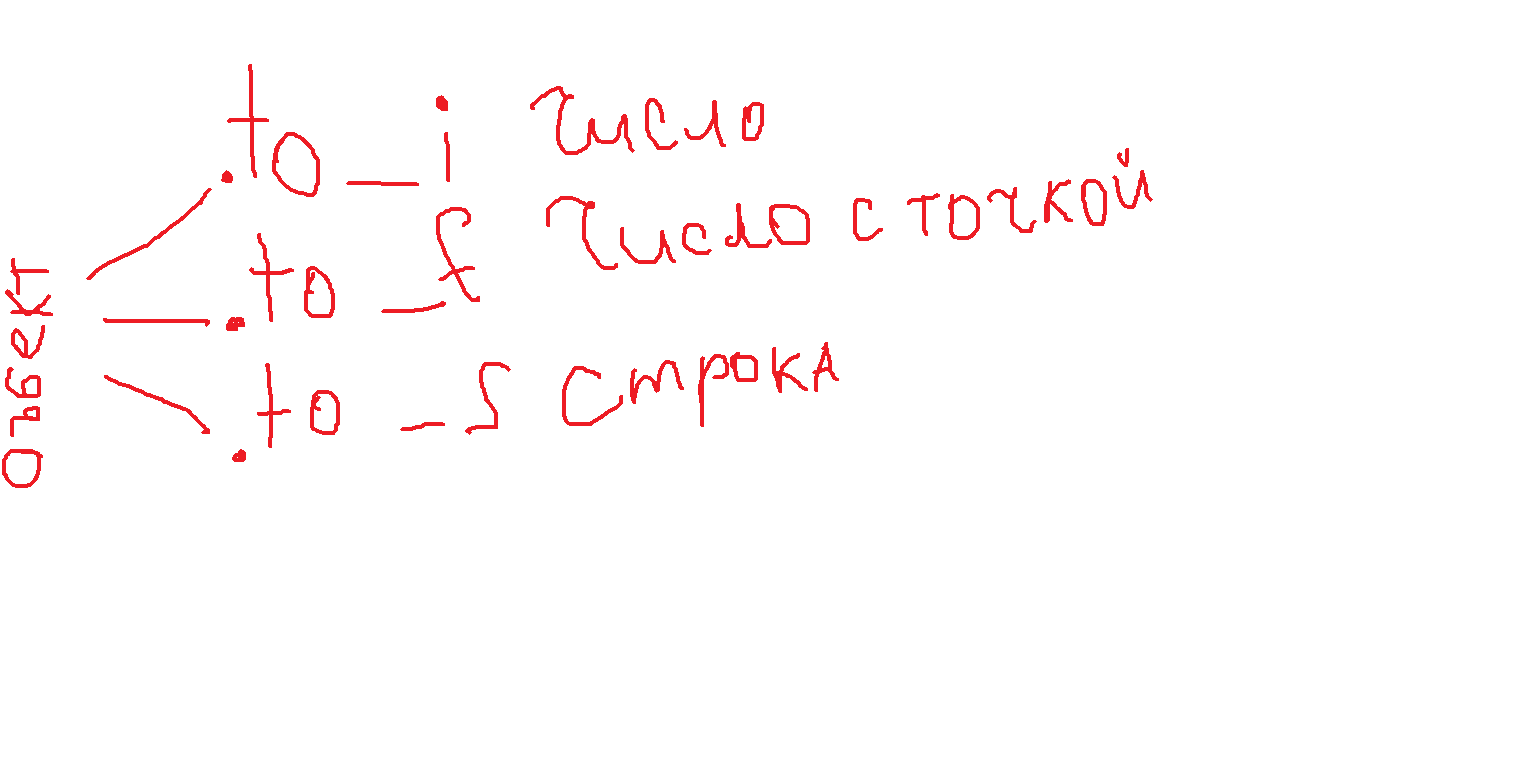 объект
.to_i число
.to_f число с точкой
.to_s строка